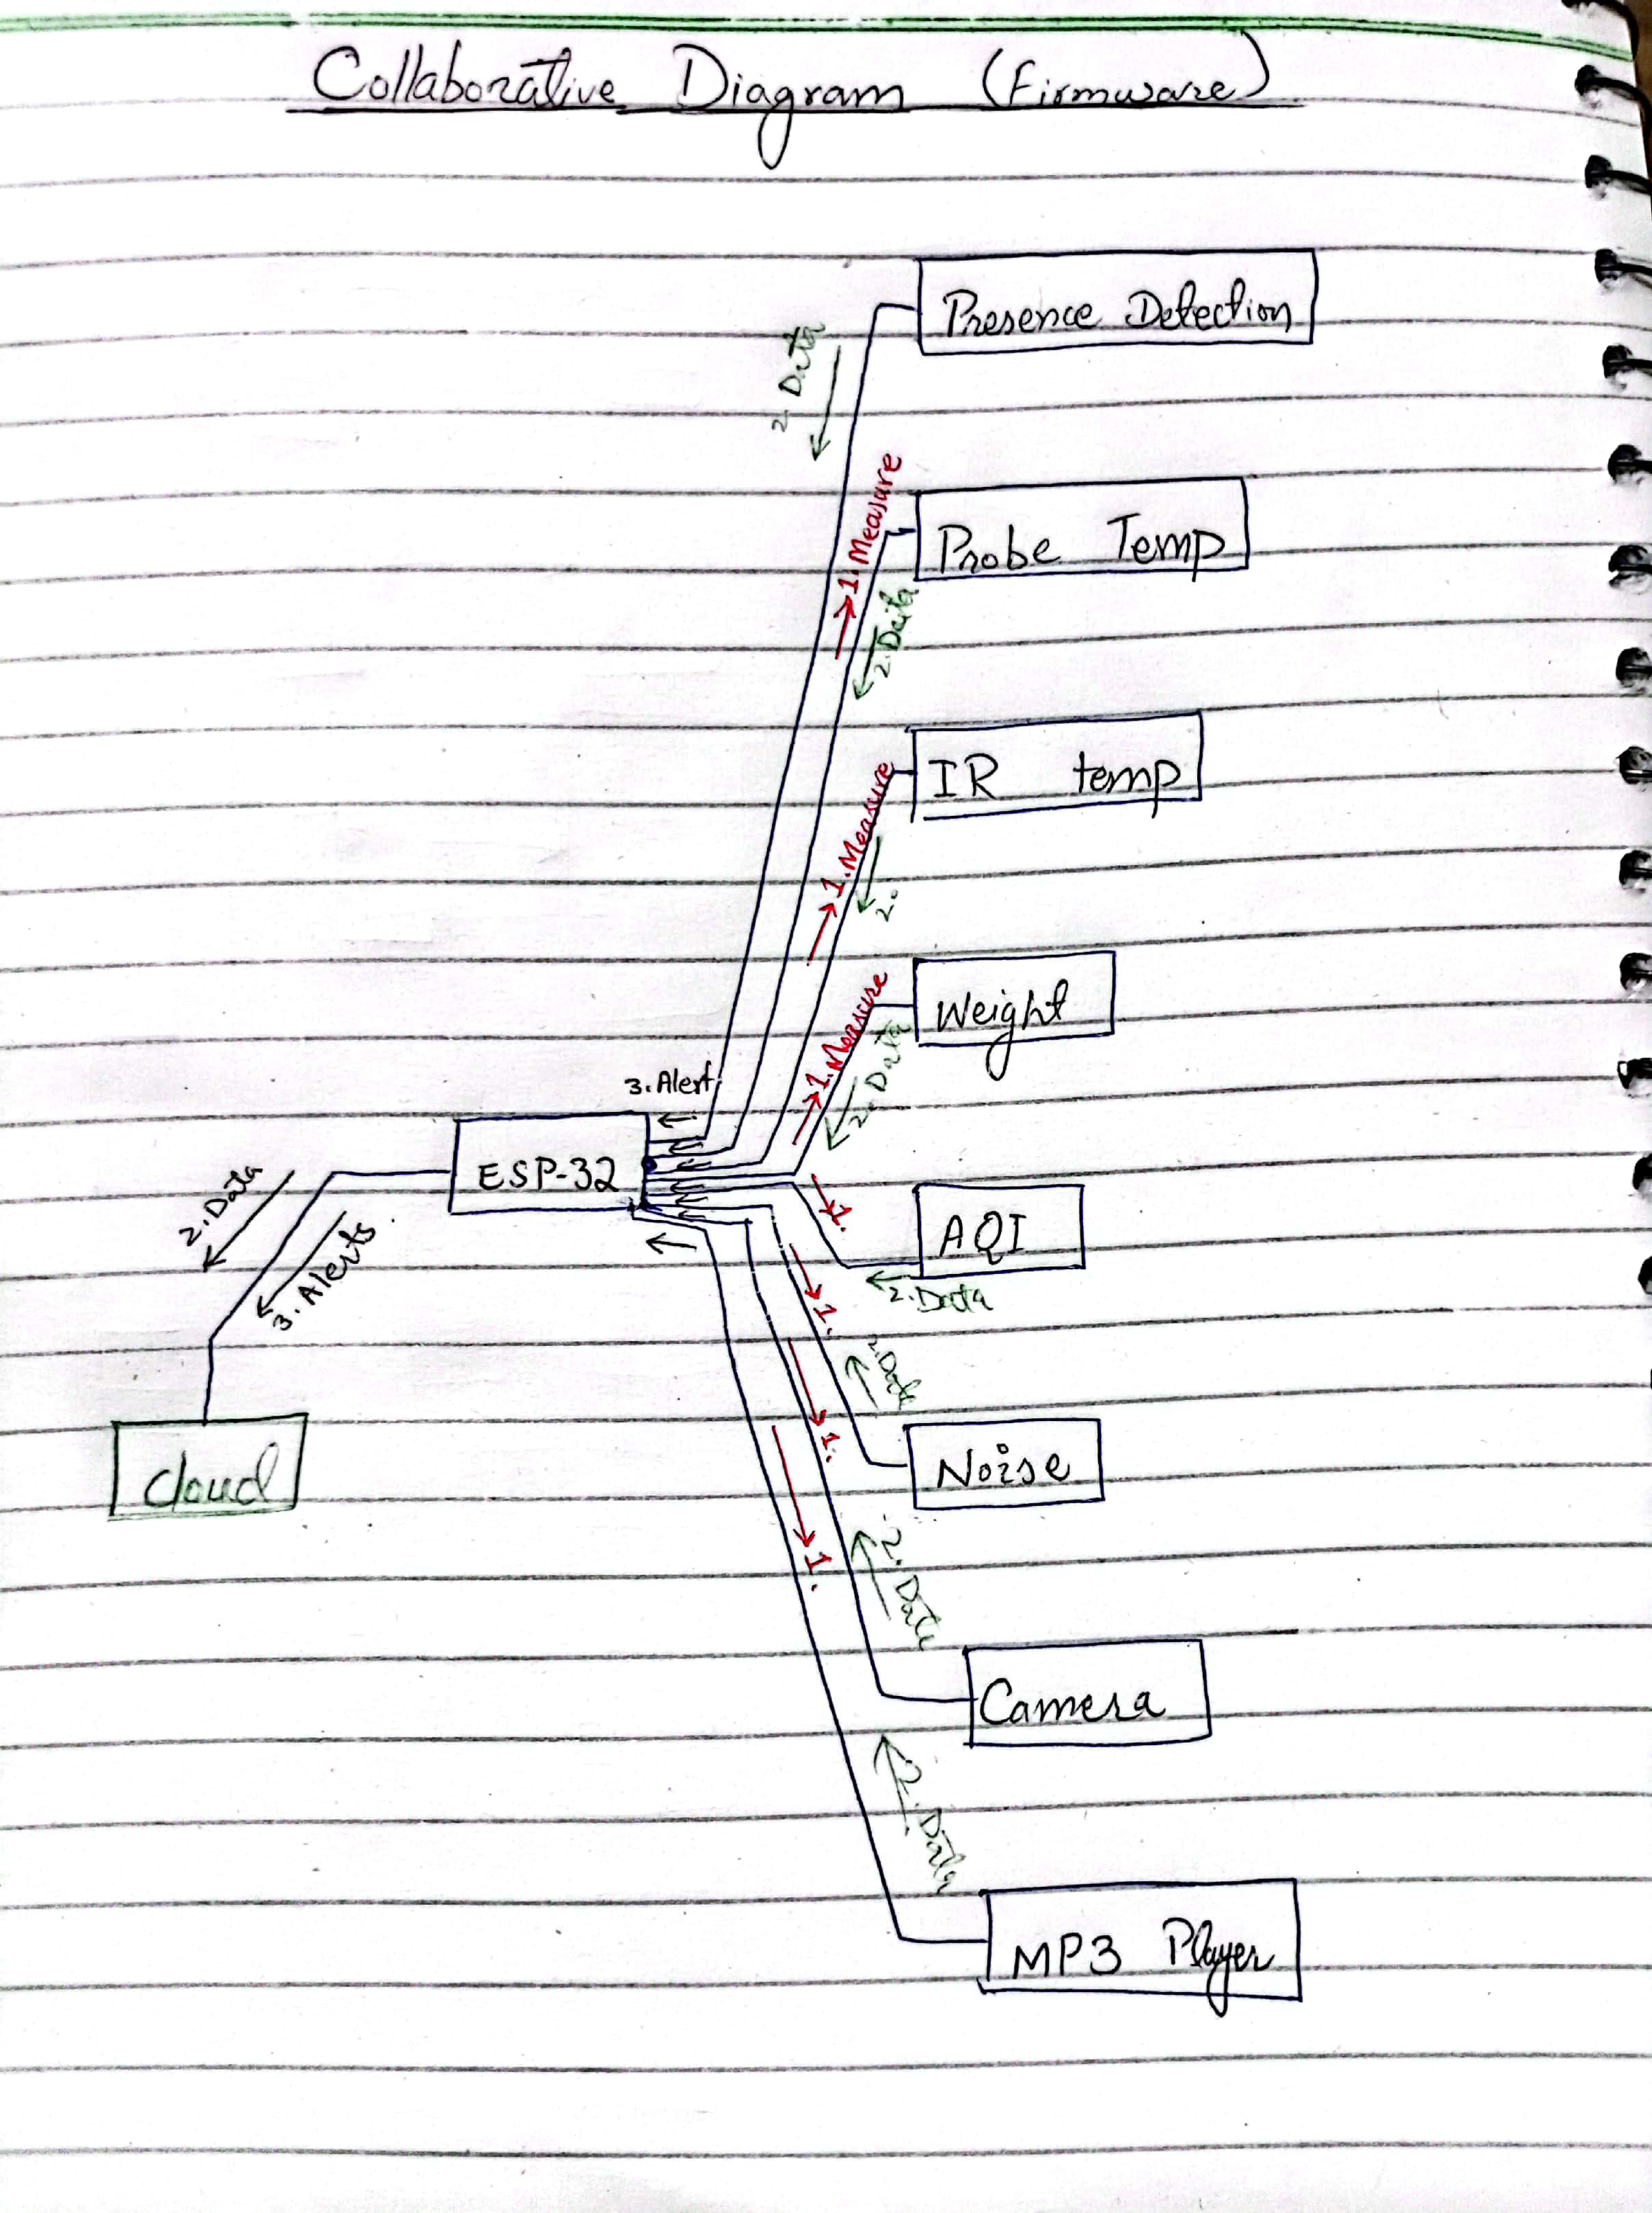 Collaborative Diagram (Firmware)
Presence Detection
2. Data
1. Measure
Probe Temp
2. Data
IR temp
1. Measure
2.
Weight
1. Measure
2. Data
3. Alert
ESP-32
2. Data
3. Alerts
1.
AQI
2. Data
1.
2. Data
1.
Cloud
Noise
1.
2. Data
Camera
2. Data
MP3 Player